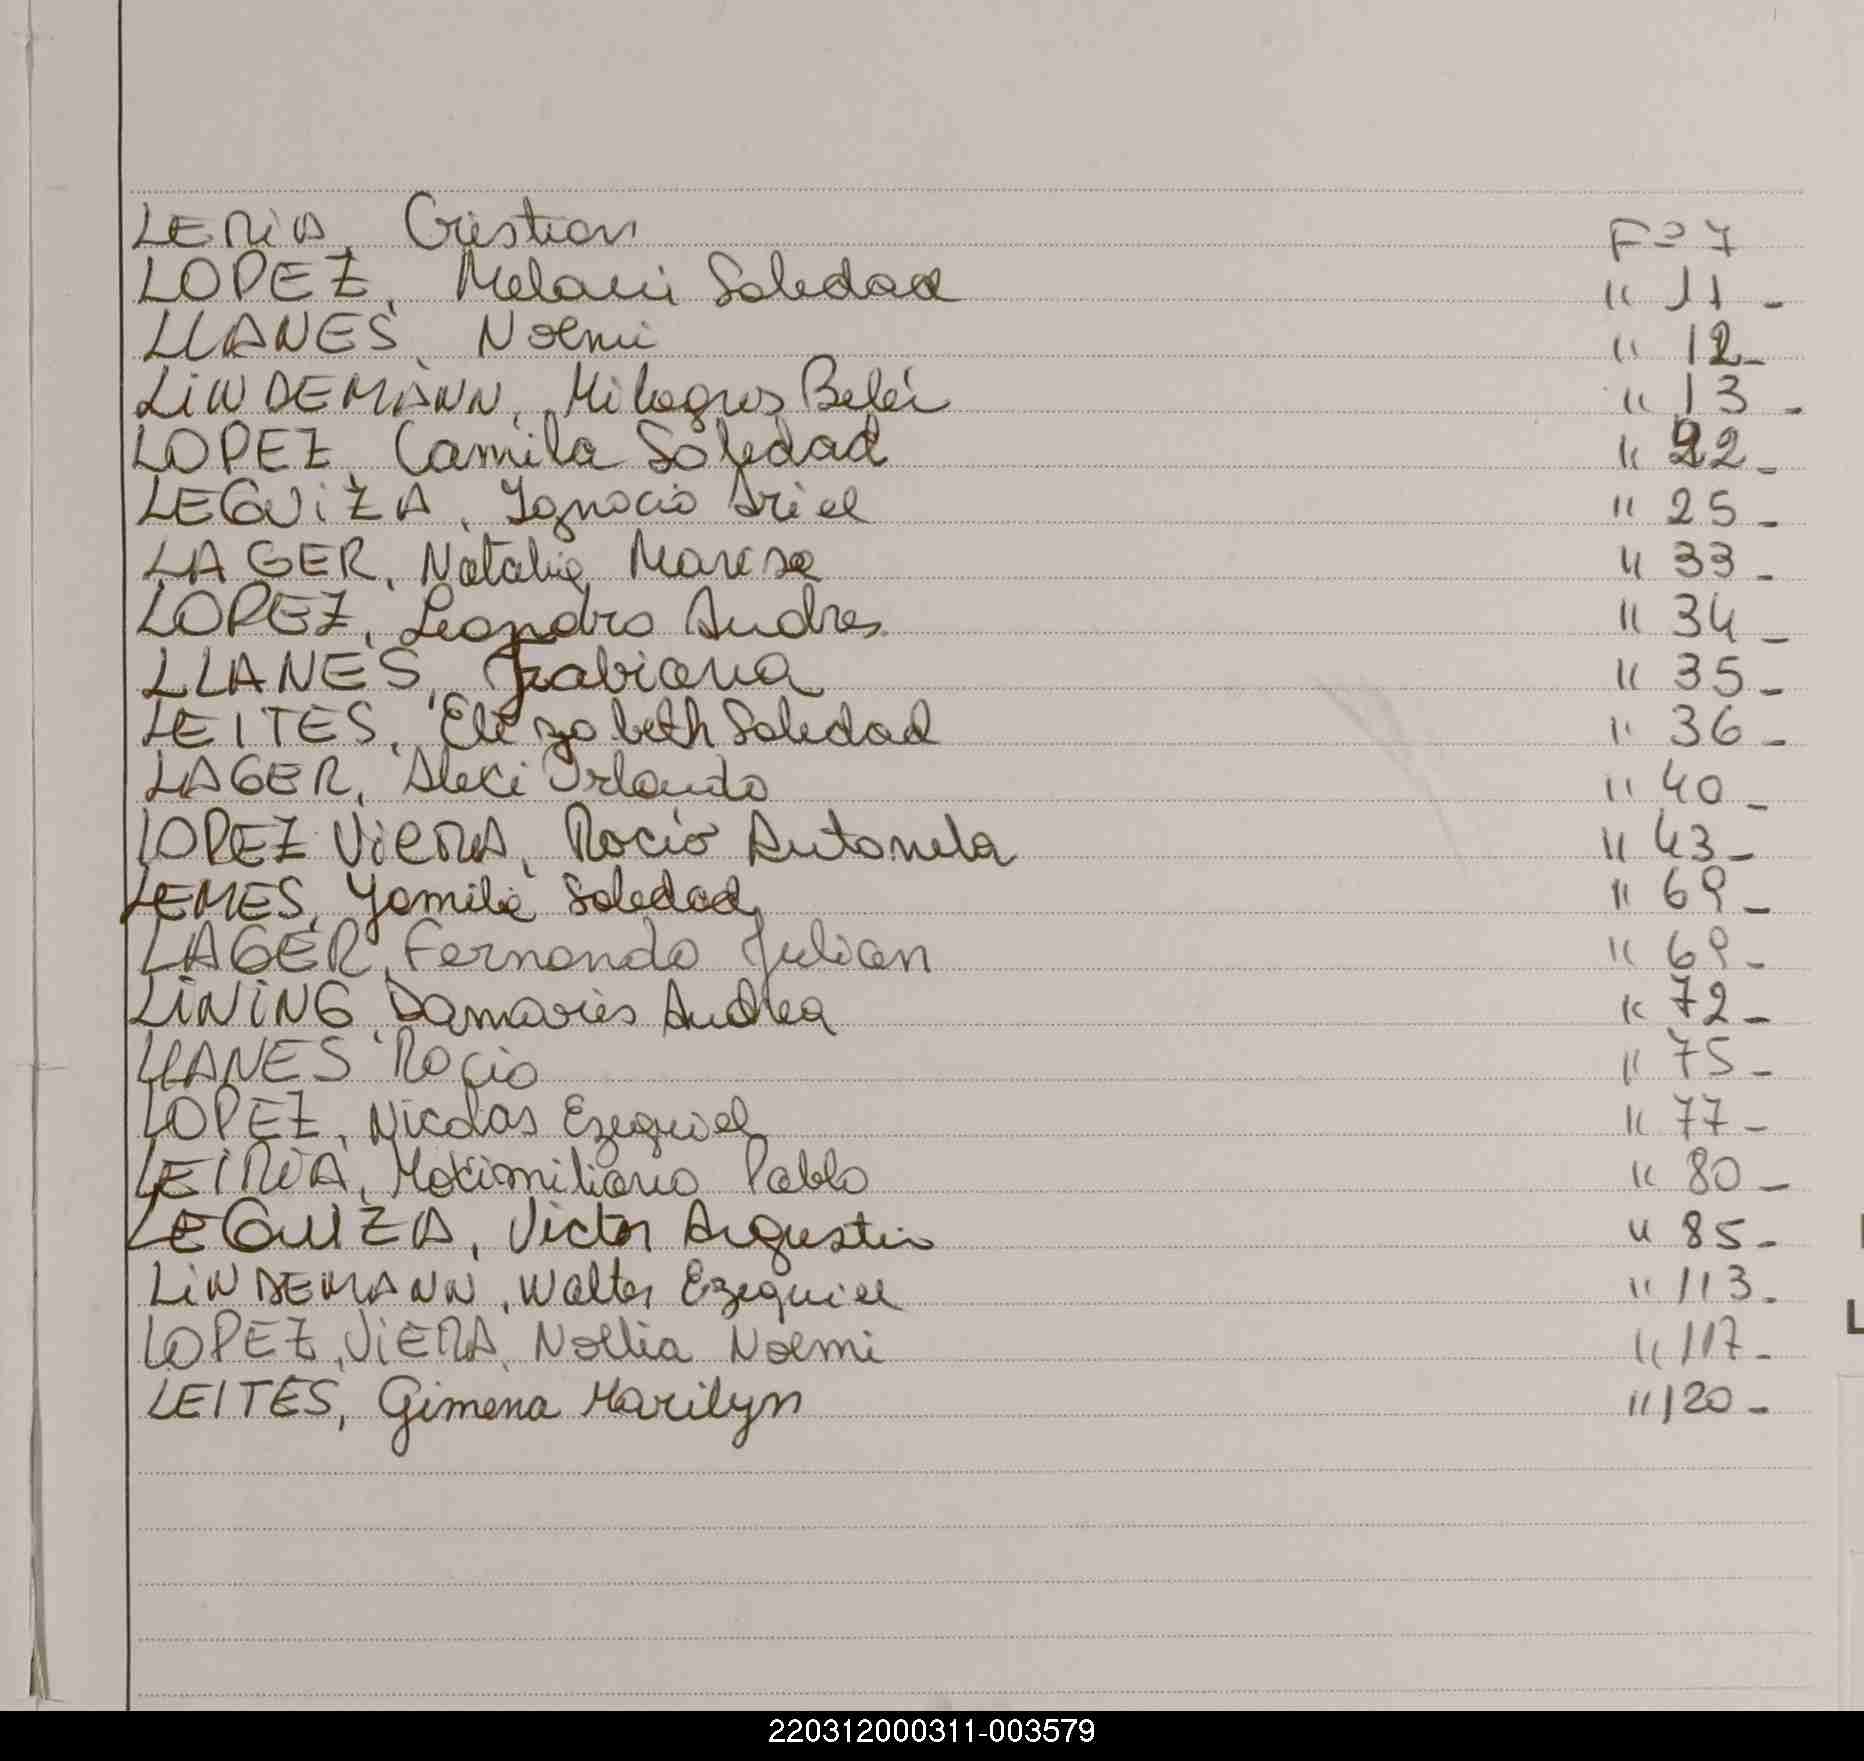 LERiA, Cristian Fº 7
LOPEZ, Melani Soledad " 11 -
LLANES, Noemi " 12 -
LiNDEMANN, Milagros Belén " 13 -
LOPEZ, Camila Soledad " 22 -
LEGUiZA, Ignacio Ariel " 25 -
LAGER, Natalia Marisa " 33 -
LOPEZ, Leandro Andres " 34 -
LLANES, Fabiana " 35 -
LEITES, Elizabeth Soledad " 36 -
LAGER, Alexi Orlando " 40 -
LOPEZ ViERA, Rocio Antonela " 43 -
LEMES, Yamila Soledad " 69 -
LAGER, Fernando Julian " 69 -
LiNiNG, Damaris Andrea " 72 -
LLANES Rocio " 75 -
LOPEZ, Nicolas Ezequiel " 77 -
LEIRiA, Maximiliano Pablo " 80 -
LEGUIZA, Victor Agustin " 85 -
LiNDEMANN, Walter Ezequiel " 113 -
LOPEZ, ViERA, Noelia Noemi " 117 -
LEITES, Gimena Marilyn " 120 -
220312000311-003579